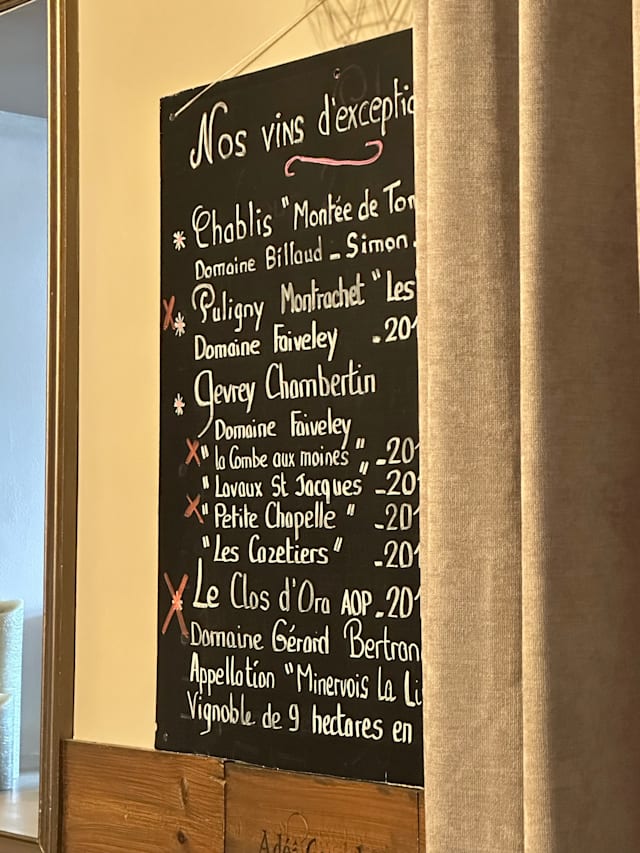 Nos vins d'exceptio
* Chablis "Montée de Ton
Domaine Billaud - Simon -
X * Puligny Montrachet "Les
Domaine Faiveley - 201
* Gevrey Chambertin
Domaine Faiveley
X "la Combe aux moines" - 201
"Lavaux St Jacques" - 201
X "Petite Chapelle" - 201
"Les Cazetiers" - 201
X * Le Clos d'Ora AOP - 201
Domaine Gérard Bertran
Appellation "Minervois La Li
Vignoble de 9 hectares en